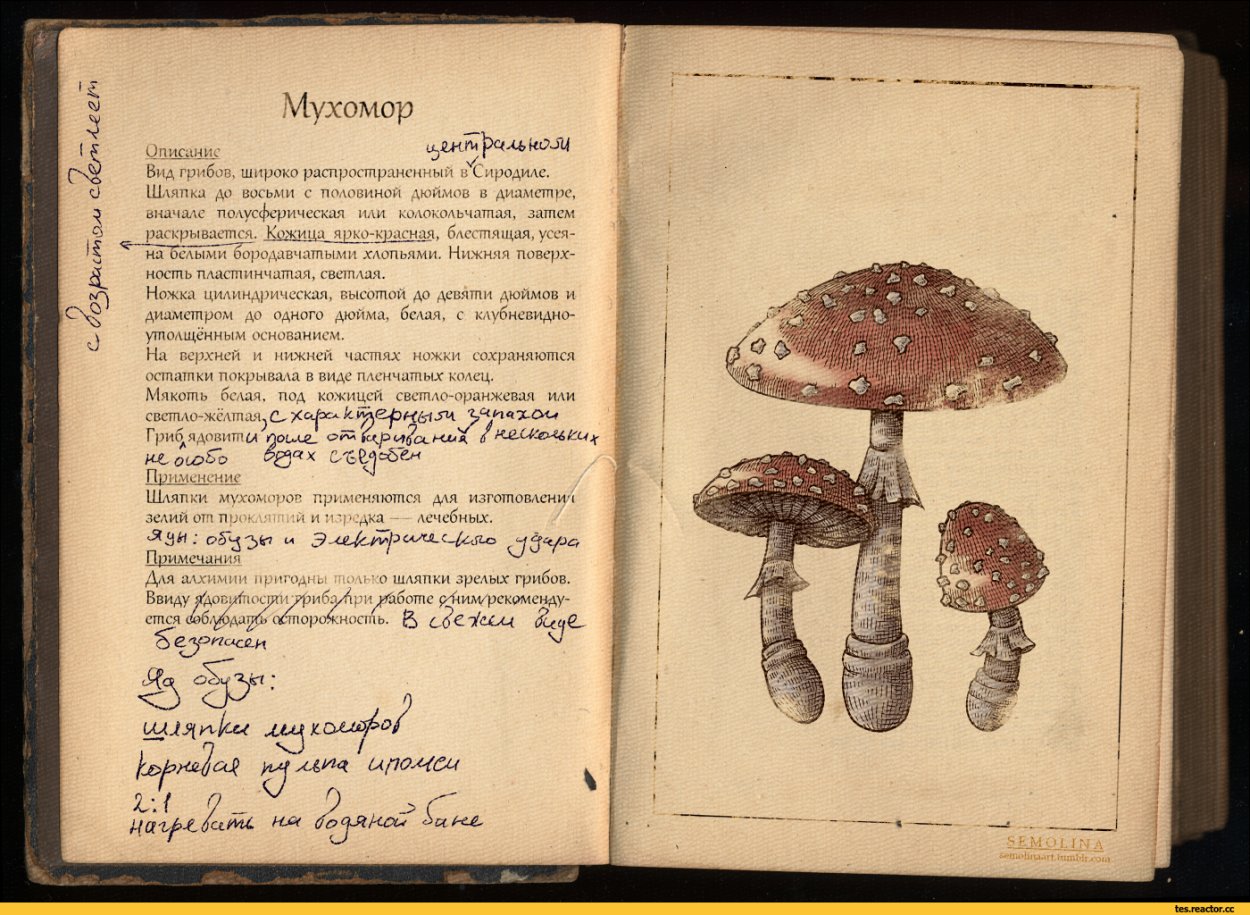 Мухомор
Описание
центральном
Вид грибов, широко распространенный в Сиродиле.
Шляпка до восьми с половиной дюймов в диаметре,
вначале полусферическая или колокольчатая, затем
раскрывается. Кожица ярко-красная, блестящая, усея-
на белыми бородавчатыми хлопьями. Нижняя поверх-
ность пластинчатая, светлая.
Ножка цилиндрическая, высотой до девяти дюймов и
диаметром до одного дюйма, белая, с клубневидно-
утолщённым основанием.
На верхней и нижней частях ножки сохраняются
остатки покрывала в виде пленчатых колец.
Мякоть белая, под кожицей светло-оранжевая или
светло-жёлтая, с характерным запахом
Гриб ядовит и после отваривания в нескольких
не особо водах съедобен
Применение
Шляпки мухоморов применяются для изготовления
зелий от проклятий и изредка — лечебных.
Яды: обузы и Электрического удара
Примечания
Для алхимии пригодны только шляпки зрелых грибов.
Ввиду ядовитости гриба при работе с ним рекоменду-
ется соблюдать осторожность. В свежем виде
безопасен
Яд обузы:
шляпки мухоморов
корневая пульпа ипомеи
2:1
нагревать на водяной бане
с возрастом светлеет
SEMOLINA
semolinaart.tumblr.com
tes.reactor.cc